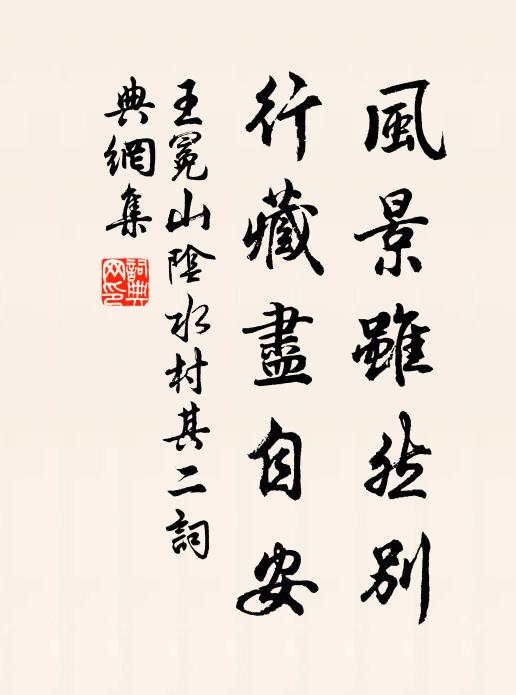 風景雖然別
行藏盡自安
王冕山陰水村其二詞
典網集
詞典
网印